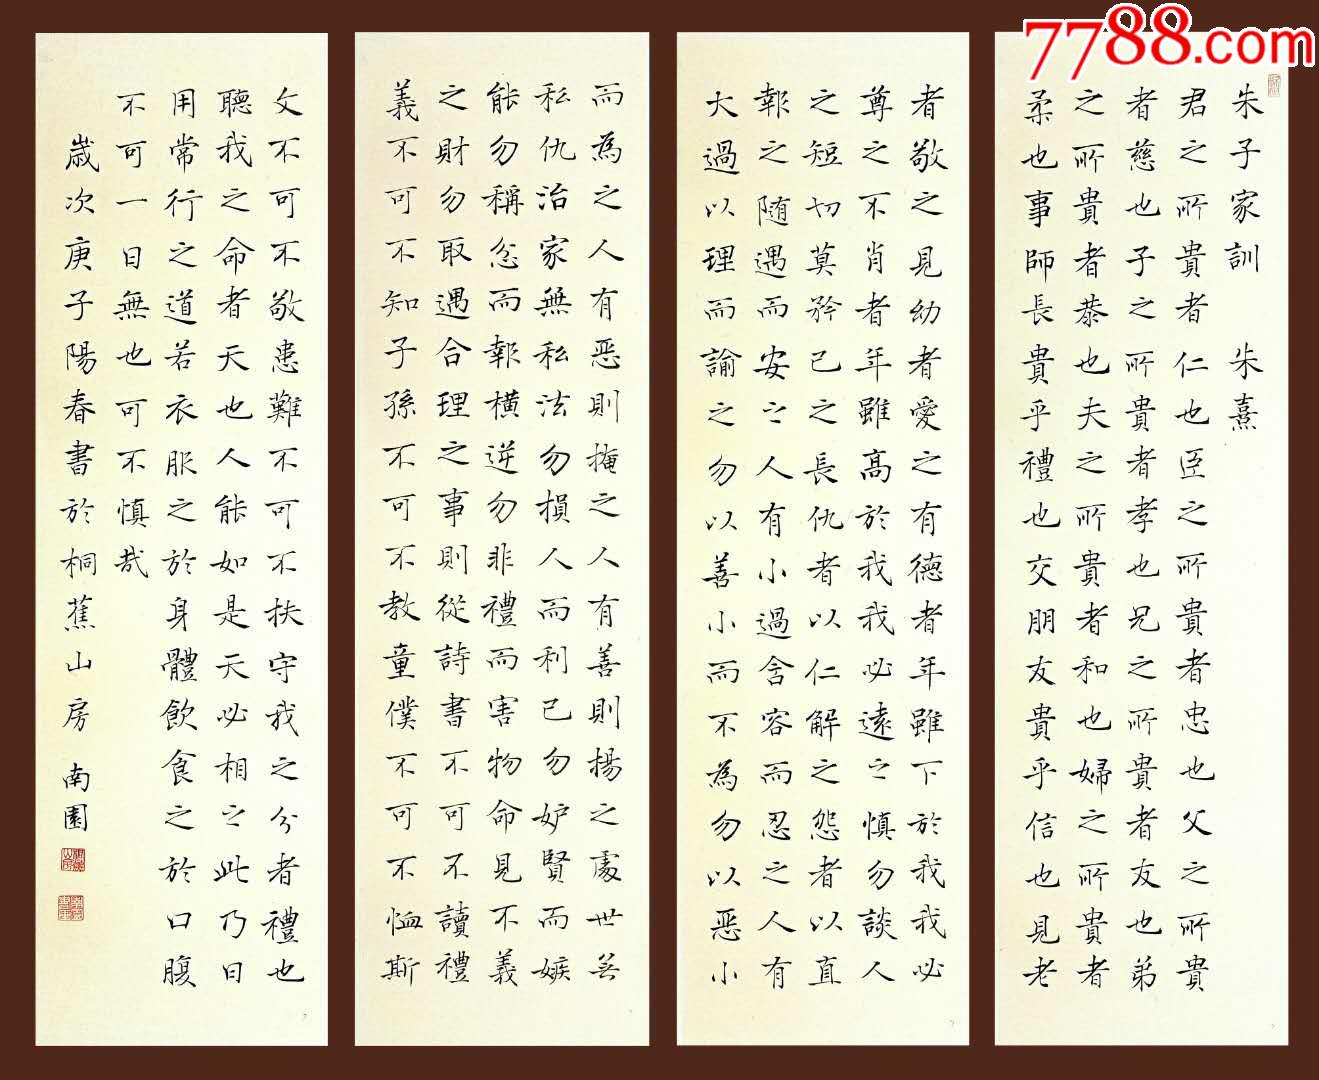 7788.com
朱子家訓 朱熹
君之所貴者仁也臣之所貴者忠也父之所貴
者慈也子之所貴者孝也兄之所貴者友也弟
之所貴者恭也夫之所貴者和也婦之所貴者
柔也事師長貴乎禮也交朋友貴乎信也見老
者敬之見幼者愛之有德者年雖下於我我必
尊之不肖者年雖高於我我必遠之慎勿談人
之短切莫矜己之長仇者以仁解之怨者以直
報之随遇而安之人有小過含容而忍之人有
大過以理而諭之勿以善小而不為勿以恶小
而為之人有恶則掩之人有善則揚之處世无
私仇治家無私法勿損人而利己勿妒賢而嫉
能勿稱忿而報橫逆勿非禮而害物命見不義
之財勿取遇合理之事則從詩書不可不讀禮
義不可不知子孫不可不教童僕不可不恤斯
文不可不敬患難不可不扶守我之分者禮也
聽我之命者天也人能如是天必相之此乃日
用常行之道若衣服之於身體飲食之於口腹
不可一日無也可不慎哉
歲次庚子陽春書於桐蕉山房 南園